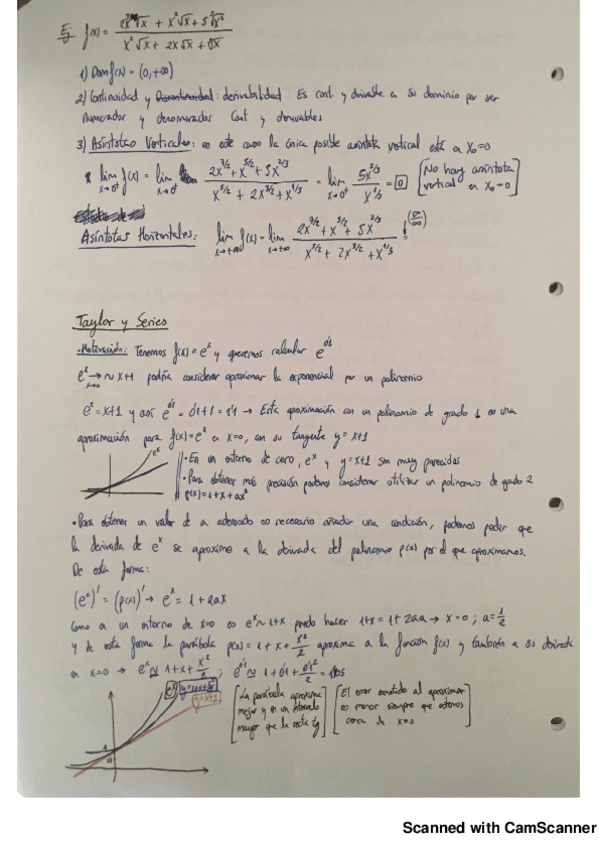 Ej f(x) = (2x³√x + x²√x + 5∛x²) / (x²√x + 2x√x + ∛x)
1) Dom f(x) = (0, +∞)
2) Continuidad y Discontinuidad: derivabilidad: Es cont. y derivable a su dominio por ser
numerador y denominador cont y derivables
3) Asíntotas Verticales: en este caso la única posible asíntota vertical está en X₀=0
lim x→0⁺ f(x) = lim x→0⁺ (2x^7/2 + x^5/2 + 5x^2/3) / (x^5/2 + 2x^3/2 + x^1/3) = lim x→0⁺ 5x^2/3 / x^1/3 = 0 [No hay asíntota vertical en X₀=0]
Asíntotas Horizontales: lim x→+∞ f(x) = lim x→+∞ (2x^7/2 + x^5/2 + 5x^2/3) / (x^5/2 + 2x^3/2 + x^1/3) (∞/∞)
Taylor y Series
·Motivación: Tenemos f(x)=eˣ y queremos calcular e^0'1
eˣ → ~ x+1 podría considerar aproximar la exponencial por un polinomio
x→0
eˣ = x+1 y así e^0'1 = 0'1+1 = 1'1 → Esta aproximación con un polinomio de grado 1 es una
aproximación para f(x)=eˣ en x=0, con su tangente y=x+1
eˣ
· En un entorno de cero, eˣ y y=x+1 son muy parecidas
· Para obtener más precisión podemos considerar utilizar un polinomio de grado 2
p(x)=1+x+ax²
· Para obtener un valor de a adecuado es necesario añadir una condición, podemos pedir que
la derivada de eˣ se aproxime a la derivada del polinomio p(x) por el que aproximamos.
De esta forma:
(eˣ)' = (p(x))' → eˣ = 1+2ax
Como en un entorno de x=0 es eˣ~1+x puedo hacer 1+x = 1+2ax → x=0 ; a=1/2
y de esta forma la parábola p(x) = 1+x+x²/2 aproxima a la función f(x) y también a su derivada
en x=0 → eˣ ≈ 1+x+x²/2 ; e^0'1 ≈ 1+0'1+0'1²/2 = 1'105
eˣ y=1+x+x²/2
y=x+1
[La parábola aproxima mejor y en un intervalo mayor que la recta tg]
[El error cometido al aproximar es menor siempre que estemos cerca de x=0]
Scanned with CamScanner